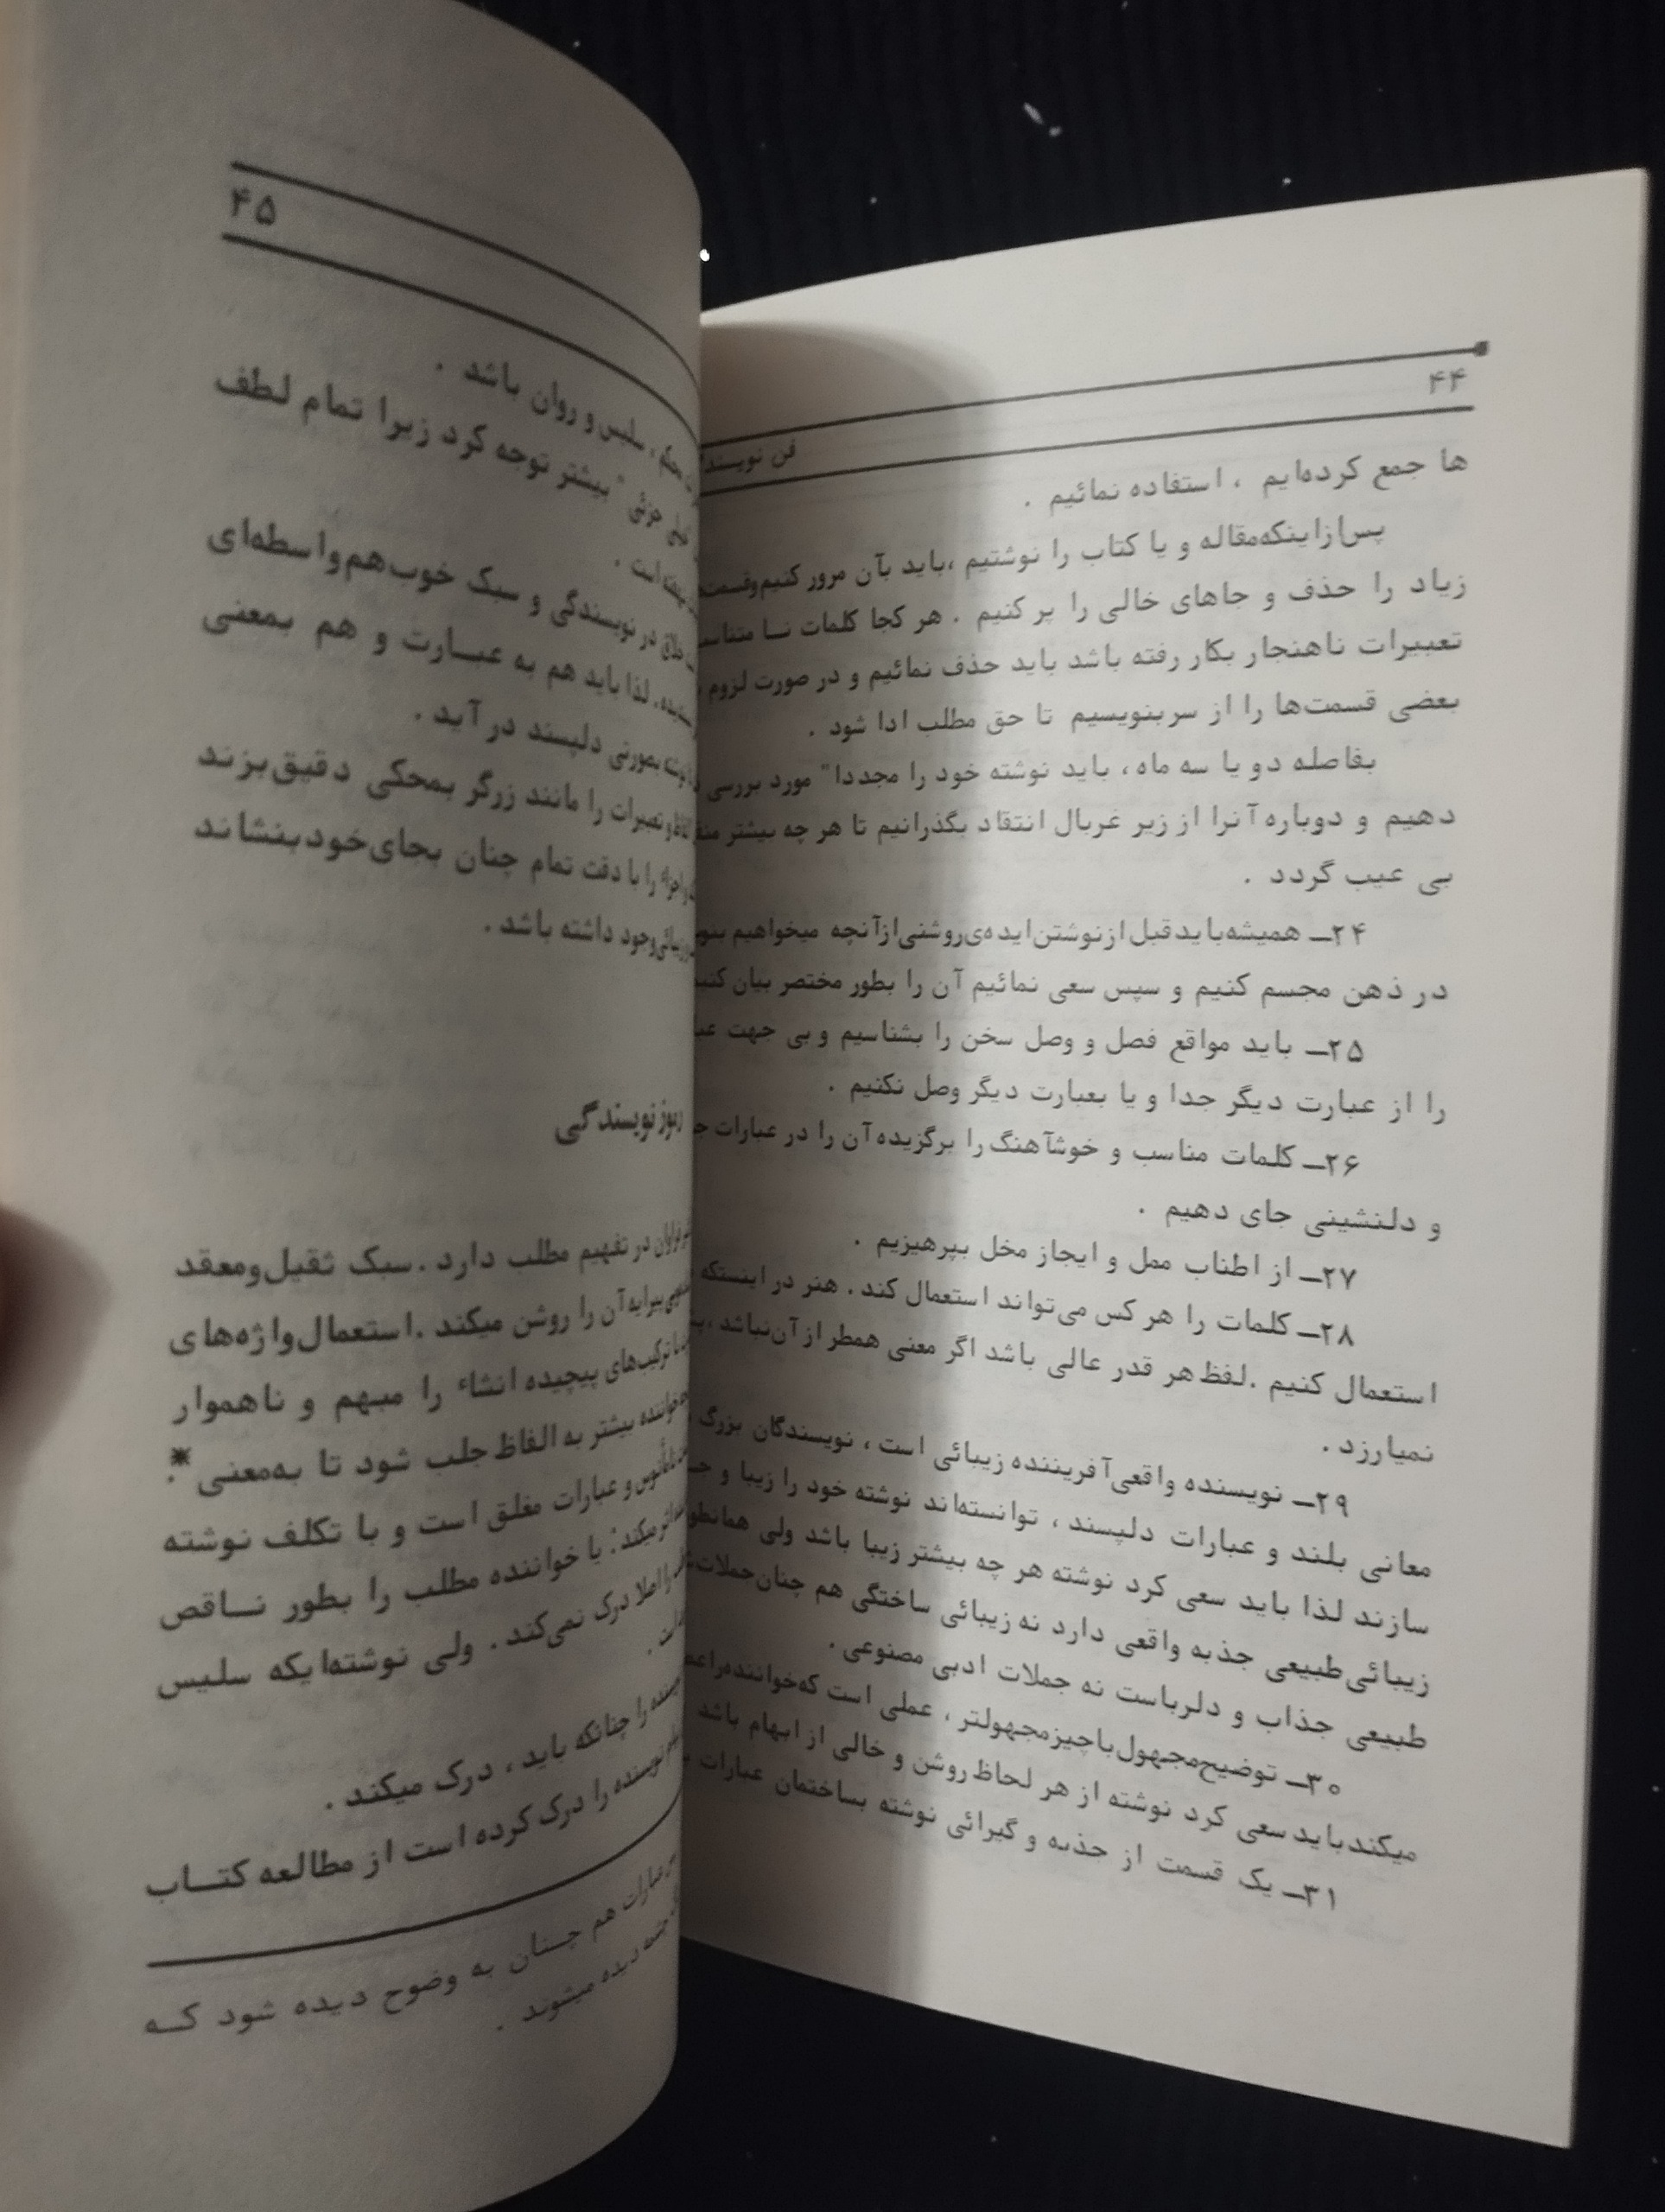 ۴۴
فن
ها جمع کرده‌ایم ، استفاده نمائیم .
پس‌ازاینکه‌مقاله و یا کتاب را نوشتیم ،باید بآن مرور کنیم‌وقسمت
زیاد را حذف و جاهای خالی را پر کنیم . هر کجا کلمات نـا
تعبیرات ناهنجار بکار رفته باشد باید حذف نمائیم و در صورت لزوم
بعضی قسمت‌ها را از سربنویسیم تا حق مطلب ادا شود .
بفاصله دو یا سه ماه ، باید نوشته خود را مجددا" مورد بررسی
دهیم و دوباره آنرا از زیر غربال انتقاد بگذرانیم تا هر چه بیشتر
بی عیب گردد .
۲۴ــ همیشه‌بایدقبل ازنوشتن‌ایده‌ی‌روشنی‌ازآنچه میخواهیم
در ذهن مجسم کنیم و سپس سعی نمائیم آن را بطور مختصر بیان
۲۵ــ باید مواقع فصل و وصل سخن را بشناسیم و بی جهت
را از عبارت دیگر جدا و یا بعبارت دیگر وصل نکنیم .
۲۶ــ کلمات مناسب و خوشآهنگ را برگزیده آن را در عبارات
و دلنشینی جای دهیم .
۲۷ــ از اطناب ممل و ایجاز مخل بپرهیزیم .
۲۸ــ کلمات را هر کس می‌تواند استعمال کند . هنر در اینستکه
استعمال کنیم .لفظ هر قدر عالی باشد اگر معنی همطر از آن‌نباشد ،
نمیارزد .
۲۹ــ نویسنده واقعی‌آفریننده زیبائی است ، نویسندگان بزرگ
معانی بلند و عبارات دلپسند ، توانسته‌اند نوشته خود را زیبا و
سازند لذا باید سعی کرد نوشته هر چه بیشتر زیبا باشد ولی
زیبائی‌طبیعی جذبه واقعی دارد نه زیبائی ساختگی هم چنان‌جملات
طبیعی جذاب و دلرباست نه جملات ادبی مصنوعی .
۳۰ــ توضیح‌مجهول‌باچیزمجهولتر ، عملی است که‌خواننده‌را
میکند‌باید سعی کرد نوشته از هر لحاظ روشن و خالی از ابهام باشد
۳۱ــ یک قسمت از جذبه و گیرائی نوشته بساختمان عبارات
۴۵
سلیس و روان باشد .
جزئی " بیشتر توجه کرد زیرا تمام لطف
است .
خلاق در نویسندگی و سبک خوب‌هم‌واسطه‌ای
لذا باید هم به عبـــارت و هم بمعنی
بصورتی دلپسند در آید .
وتعبیرات را مانند زرگر بمحکی دقیق‌بزند
را با دقت تمام چنان بجای‌خود‌بنشاند
وجود داشته باشد .
رموز نویسندگی
در تفهیم مطلب دارد .سبک ثقیل‌ومعقد
آن را روشن میکند .استعمال‌واژه‌های
ترکیب‌های پیچیده انشاء را مبهم و ناهموار
خواننده بیشتر به الفاظ جلب شود تا به‌معنی*.
و عبارات مغلق است و با تکلف نوشته
میکند: یا خواننده مطلب را بطور نـــاقص
را اصلا درک نمی‌کند . ولی نوشته‌ایکه سلیس
است .
را چنانکه باید ، درک میکند .
نویسنده را درک کرده است از مطالعه کتـــاب
عبارات هم چـنان به وضوح دیده شود کـــه
دیده میشوند .